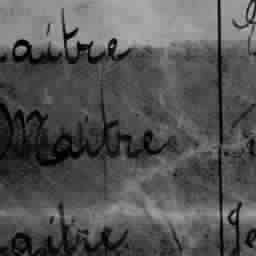 aitre
Maitre
aitre